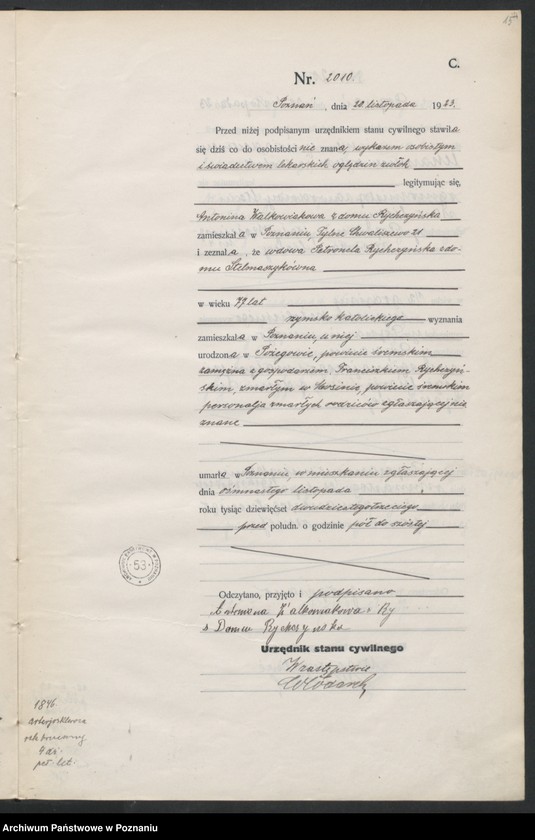 15
C.
Nr. 2010.
Poznań, dnia 20 listopada 1923.
Przed niżej podpisanym urzędnikiem stanu cywilnego stawiła
się dziś co do osobistości nie znana, wykazem osobistym
i świadectwem lekarskich oględzin zwłok
legitymując się,
Antonina Walkowiakowa z domu Rycherzyńska
zamieszkała w Poznaniu, Tylne Chwaliszewo 21
i zeznała, że wdowa Petronela Rycherzyńska z do-
mu Stelmaszykówna
w wieku 77 lat
rzymsko katolickiego wyznania
zamieszkała w Poznaniu, u niej
urodzona w Pożegowie, powiecie śremskim
zamężna z gospodarzem Franciszkiem Rycherzyń-
skim, zmarłym w Mosinie, powiecie śremskim
personalja zmarłych rodziców zgłaszającej nie
znane
umarła w Poznaniu, w mieszkaniu zgłaszającej
dnia ośmnastego listopada
roku tysiąc dziewięćset dwudziestegotrzeciego
przed połudn. o godzinie pół do szóstej
53
Odczytano, przyjęto i podpisano
Antonina Walkowiakowa Ry
z Domu Rycherzyńska
Urzędnik stanu cywilnego
W zastępstwie
1846
4 dz.
Archiwum Państwowe w Poznaniu